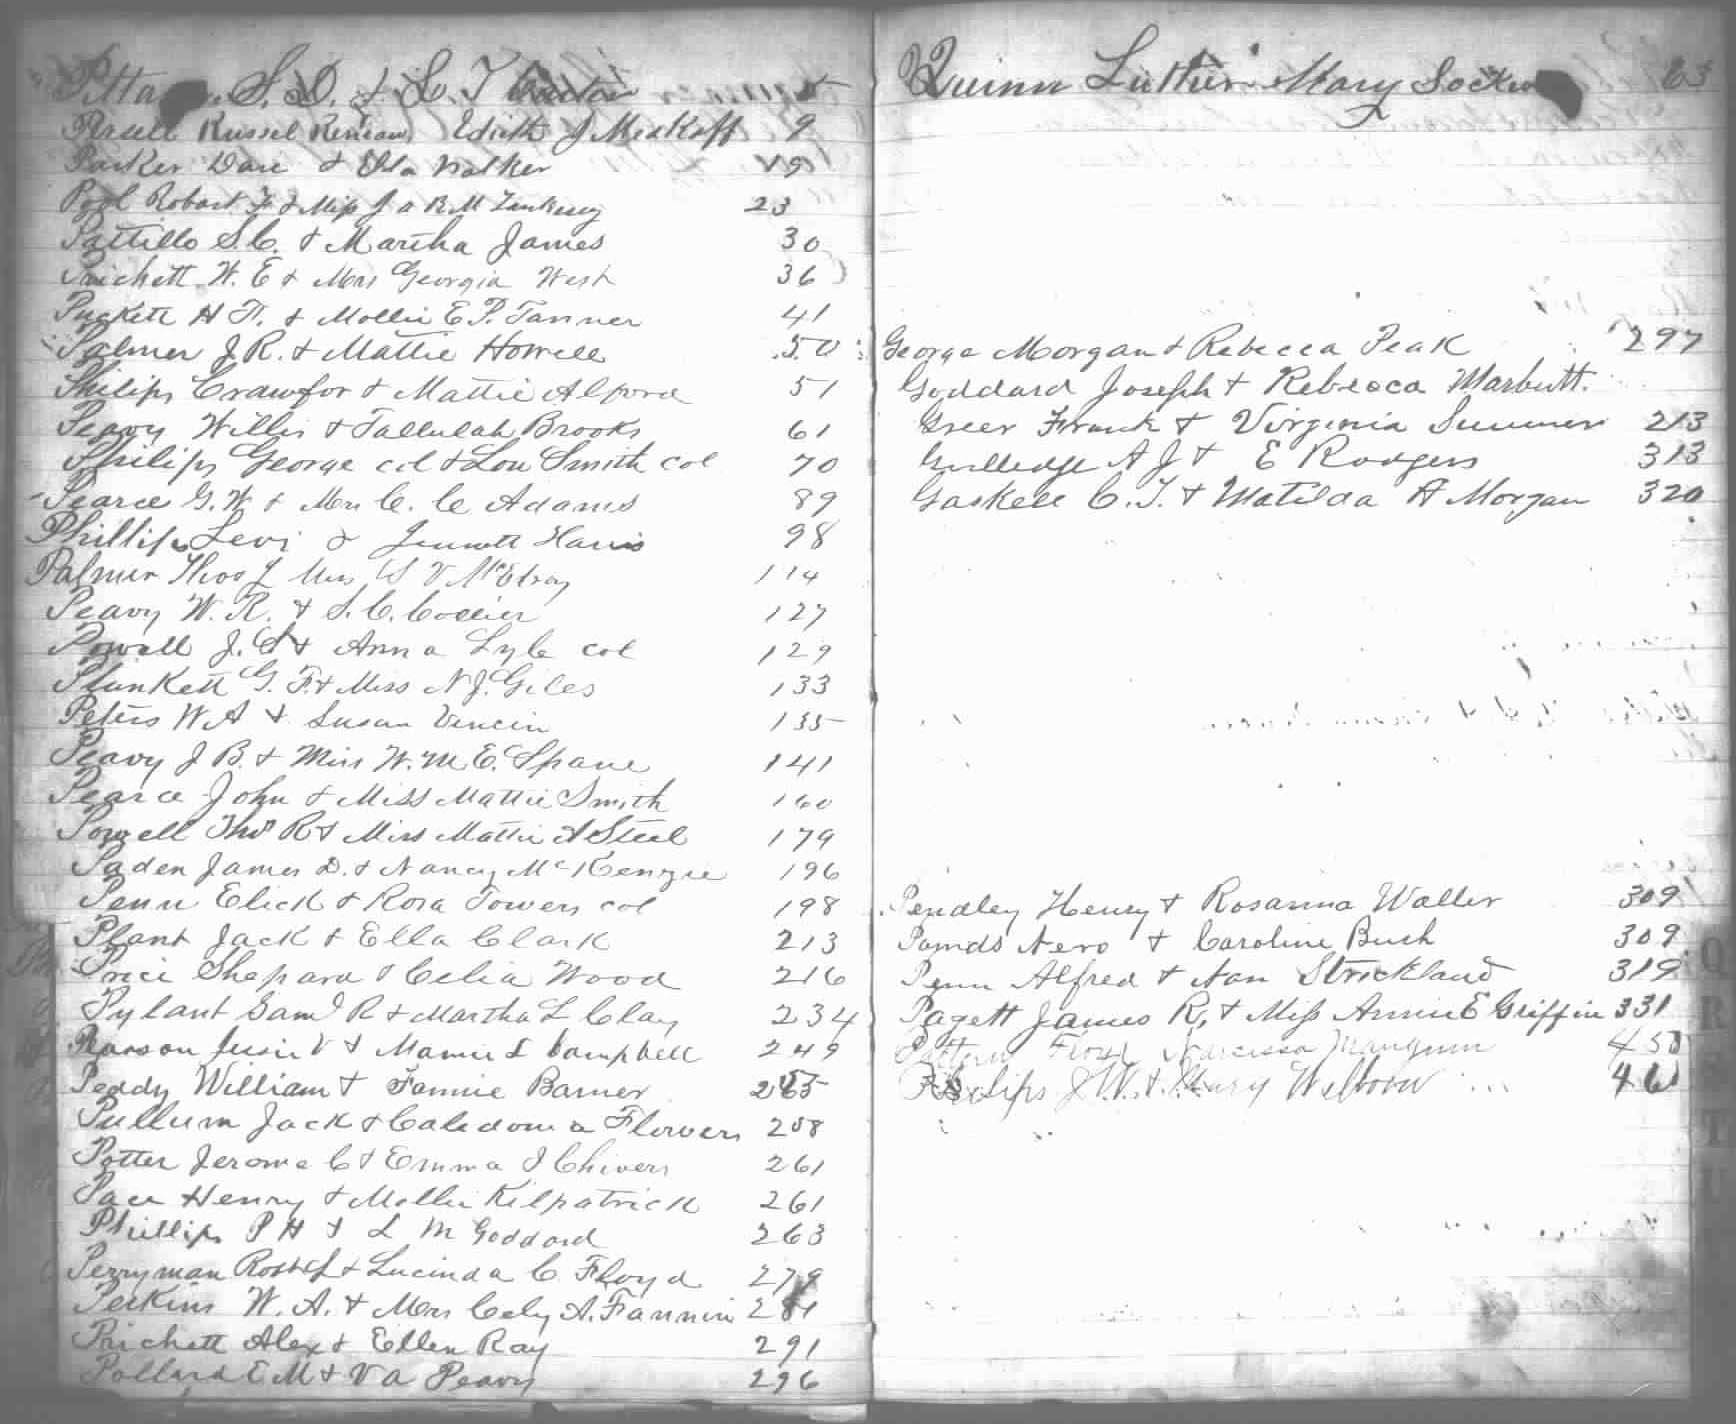 S. D. & L. T 5
Russel Edith J Meakoff 9
Parker Dave & Ola Walker 19
Pool Robert F & Miss J a R M 23
Pattillo S. C. & Martha James 30
Prichett W. E & Mrs Georgia West 36
Puckett H F. & Mollie E. P. Tanner 41
Palmer J R. & Mattie Howell 50
Philips Crawfor & Mattie Alford 51
Peavy Willis & Tallulah Brooks 61
Philips George col & Lou Smith col 70
Pearce G. W & Mrs C. C Adams 89
Phillips Levi & Jennett Harris 98
Palmer Thos J Mrs S V McElroy 114
Peavy W. R. & S. C. Collier 127
Powell J. S & Anna Lyle col 129
Plunkett G. F. & Miss N J. Giles 133
Peters W A & Susan 135
Peavy J B. & Miss W. M E. Spane 141
Pearce John & Miss Mattie Smith 160
Powell Thos R & Miss Mattie A Steel 179
Paden James D. & Nancy McKenzie 196
Penn Elick & Rosa Towers col 198
Plant Jack & Ella Clark 213
Price Shepard & Celia Wood 216
Pylant Saml R & Martha L Clay 234
V & Mamie L Campbell 249
Peddy William & Fannie Barner
Pullum Jack & Caledonia Flowers 258
Potter Jerome C & Emma J Chivers 261
Pace Henry & Mollie Kilpatrick 261
Phillips P H & L M Goddard 263
Perryman Robt L & Lucinda C. Floyd 279
Perkins W. A. & Mrs Cely A. Fannin 281
Prichett Alex & Ellen Ray 291
Pollard E M & V A Peavy 296
Quinn Luther Mary 63
George Morgan & Rebecca Peak 297
Goddard Joseph & Rebecca Marbutt.
Greer Frank & Virginia Summer 213
Gulledge A J & E Rodgers 313
Gaskell C. T. & Matilda A Morgan 320
Pendley Henry & Rosanna Waller 309
Pounds Nero & Caroline Bush 309
Penn Alfred & Nan Strickland 319
Pagett James R, & Miss Annie E Griffin 331
Narcissa Mangum 450
Philips J. W. & Mary Welborn 461
Q
R
S
T
U